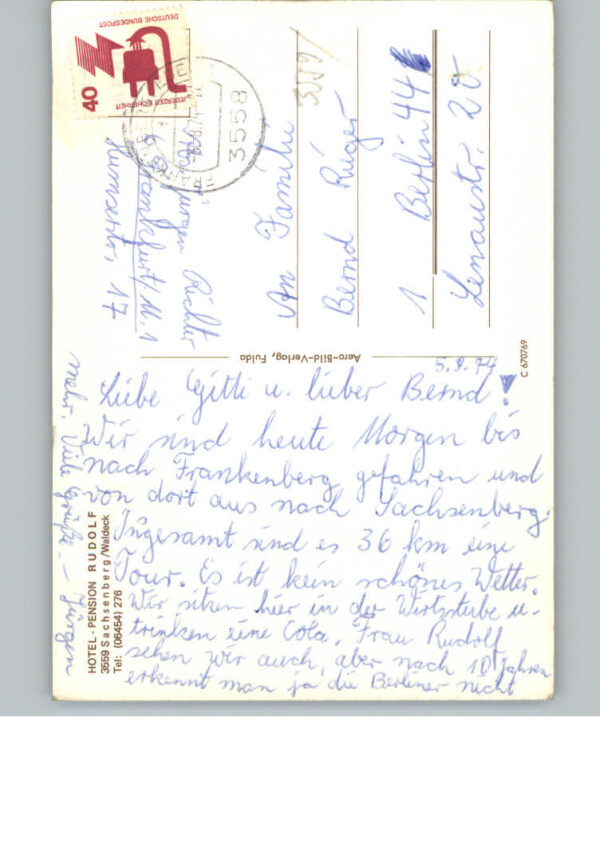 5.9.74
Liebe Gitti u. lieber Bernd!
Wir sind heute Morgen bis
nach Frankenberg gefahren und
von dort aus nach Sachsenberg.
Insgesamt sind es 36 km eine
Tour. Es ist kein schönes Wetter.
Wir sitzen hier in der Wirtstube u.
trinken eine Cola. Frau Rudolf
sehen wir auch, aber nach 10 Jahren
erkennt man ja die Berliner nicht
mehr. Viele Grüße - Jürgen
HOTEL-PENSION RUDOLF
3559 Sachsenberg/Waldeck
Tel: (06454) 276
Aero-Bild-Verlag, Fulda
C 670769
DEUTSCHE BUNDESPOST
JEDERZEIT SICHERHEIT
40
3558
Jürgen Richter
6 Frankfurt/M. 1
17
3559
An Familie
Bernd Rüger
1 Berlin 44
Lenaustr. 20